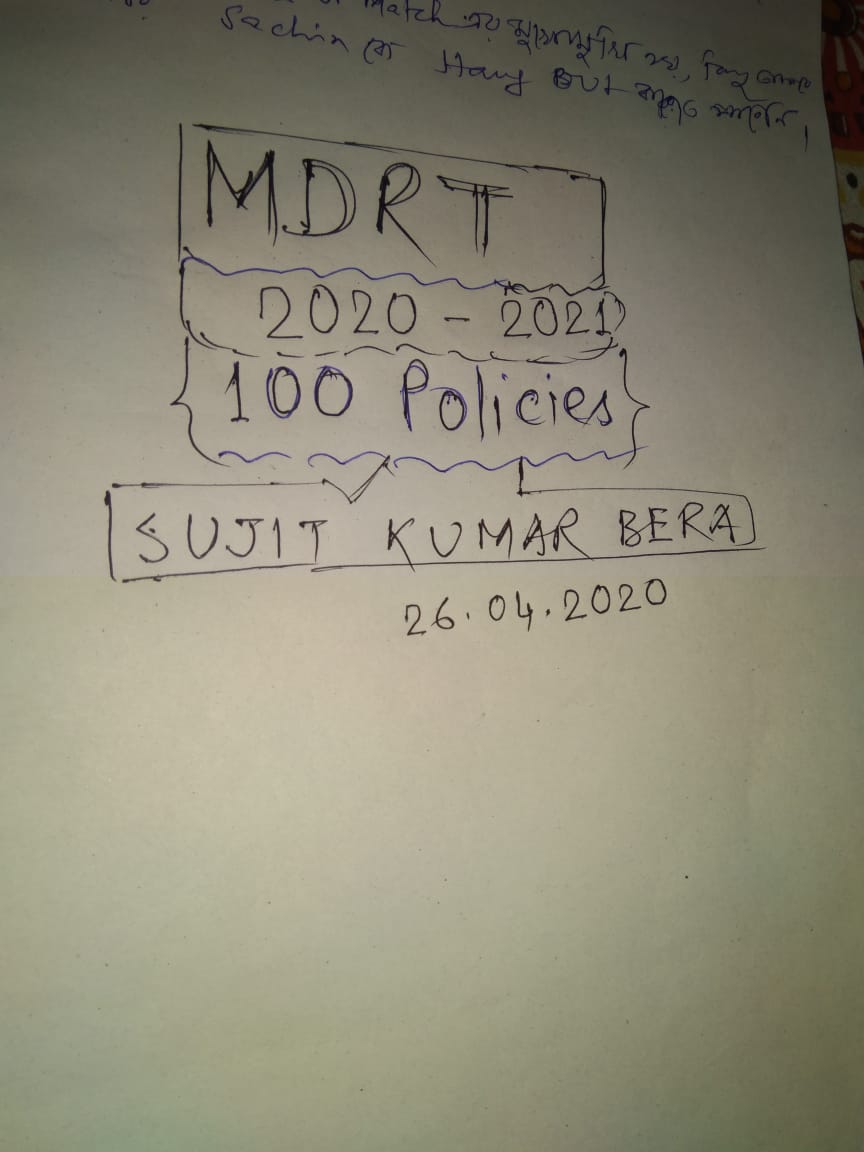 Match এর মুখোমুখি হয়, কিন্তু
Sachin কে Hang OUT করতে পারেনি।
MDRT
2020 - 2021
100 Policies
SUJIT KUMAR BERA
26.04.2020